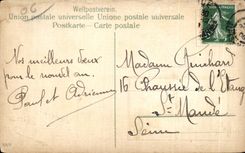 Weltpostverein.
Union postale universelle Unione postale universale
Postkarte — Carte postale
06
Nos meilleurs vœux
pour le nouvel an.
Paul et Adrienne
Madame Guichard
16 Chaussée de l'Etang
St Mandé
Seine